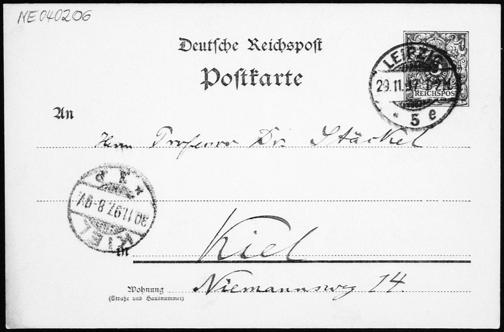 NE040206
Deutsche Reichspost
Postkarte
LEIPZIG
29.11.97
* 5 e
REICHSPOST
An
Herrn Professor Dr. Stäckel
KIEL
30.11.97.8-9V.
in Kiel
Wohnung Niemannsweg 14
(Straße und Hausnummer)